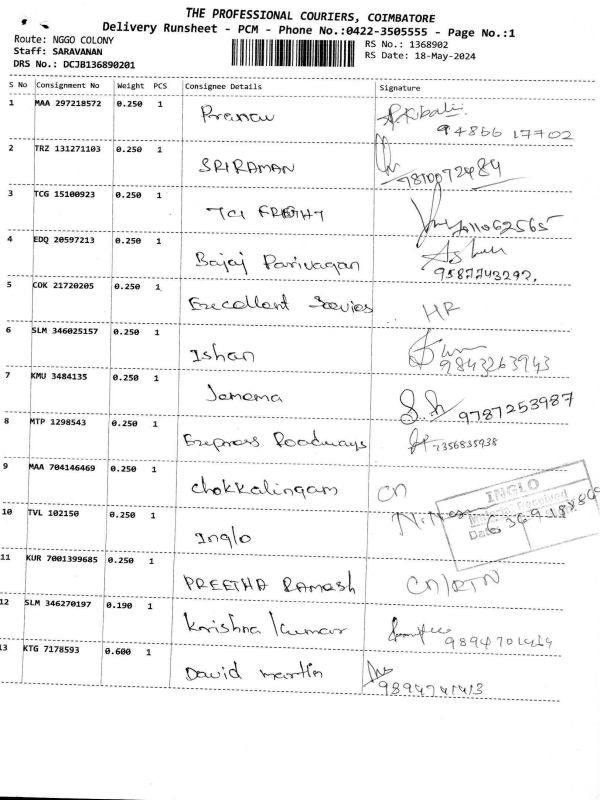 THE PROFESSIONAL COURIERS, COIMBATORE
Delivery Runsheet - PCM - Phone No.:0422-3505555 - Page No.:1
Route: NGGO COLONY RS No.: 1368902
Staff: SARAVANAN RS Date: 18-May-2024
DRS No.: DCJB136890201
S No Consignment No Weight PCS Consignee Details Signature
1 MAA 297218572 0.250 1 Pranav
94866 17702
2 TRZ 131271103 0.250 1 SRIRAMAN
3 TCG 15100923 0.250 1 TCI FREIGHT
4 EDQ 20597213 0.250 1 Bajaj Parivagan
9587743292.
5 COK 21720205 0.250 1 Excellent HR
6 SLM 346025157 0.250 1 Ishan
9843263943
7 KMU 3484135 0.250 1 Jemema 9787253987
8 MTP 1298543 0.250 1 Express Roadways 7356835938
9 MAA 704146469 0.250 1 Chokkalingam CN
INGLO
10 TVL 102150 0.250 1 Inglo
11 KUR 7001399685 0.250 1 PREETHA Ramesh CN/RTN
12 SLM 346270197 0.190 1 Krishna Kumar
13 KTG 7178593 0.600 1 David martin